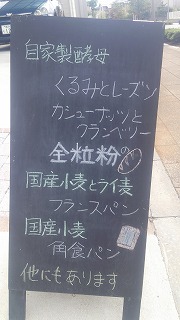 自家製酵母
くるみとレーズン
カシューナッツと
クランベリー
全粒粉の
国産小麦とライ麦
フランスパン
国産小麦
角食パン
他にもあります